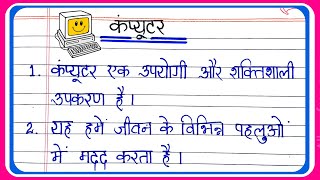 कंप्यूटर
1. कंप्यूटर एक उपयोगी और शक्तिशाली
उपकरण है।
2. यह हमें जीतन के विभिन्न पहलुओं
में मदद करता है।